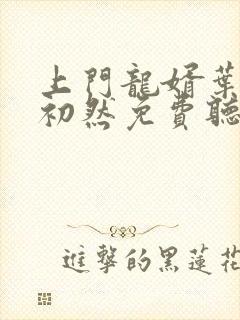 上門龍婿葉
初然免費聽
進擊的黑蓮花